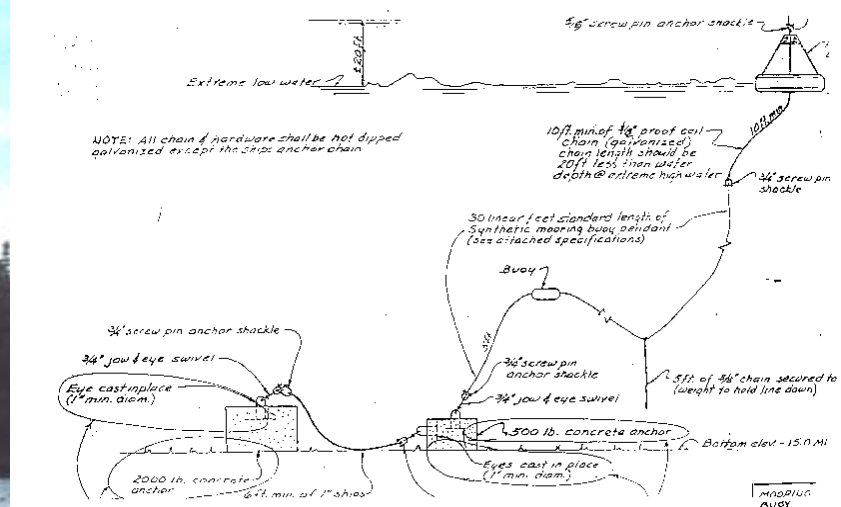 5/8" screw pin anchor shackle
±20ft
Extreme low water
NOTE: All chain & hardware shall be hot dipped
galvanized except the ships anchor chain
10ft. min. of
chain (galvanized)
chain length should be
20ft less than water
depth @ extreme high water
10ft min
3/4" screw pin
shackle
30 linear feet standard length of
Synthetic mooring buoy pendant
(see attached specifications)
Buoy
3/4" screw pin anchor shackle
3/4" jaw & eye swivel
Eye cast in place
(1" min. diam.)
3/4" screw pin
anchor shackle
3/4" jaw & eye swivel
5ft. of 5/8" chain secured to
(weight to hold line down)
500 lb. concrete anchor
Bottom elev - 15.0 Ml
Eyes cast in place
(1" min. diam.)
2000 lb. concrete
anchor
6ft. min. of 1" ships
MOORING
BUOY